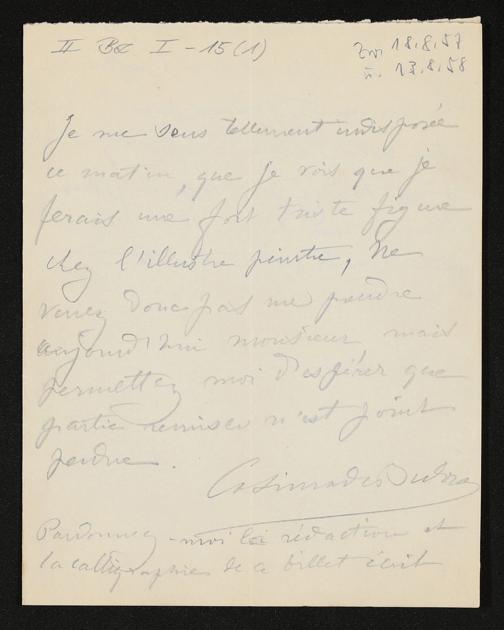 II Bl I - 15 (1)
18.8.57
13.8.58
Je me sens tellement indisposée
ce matin, que je vois que je
ferais une fort triste figure
chez l'illustre peintre, Ne
venez donc pas me prendre
aujourd'hui monsieur mais
permettez moi d'espérer que
partie remise n'est point
perdue.
Pardonnez-moi la rédaction et
la calligraphie de ce billet écrit